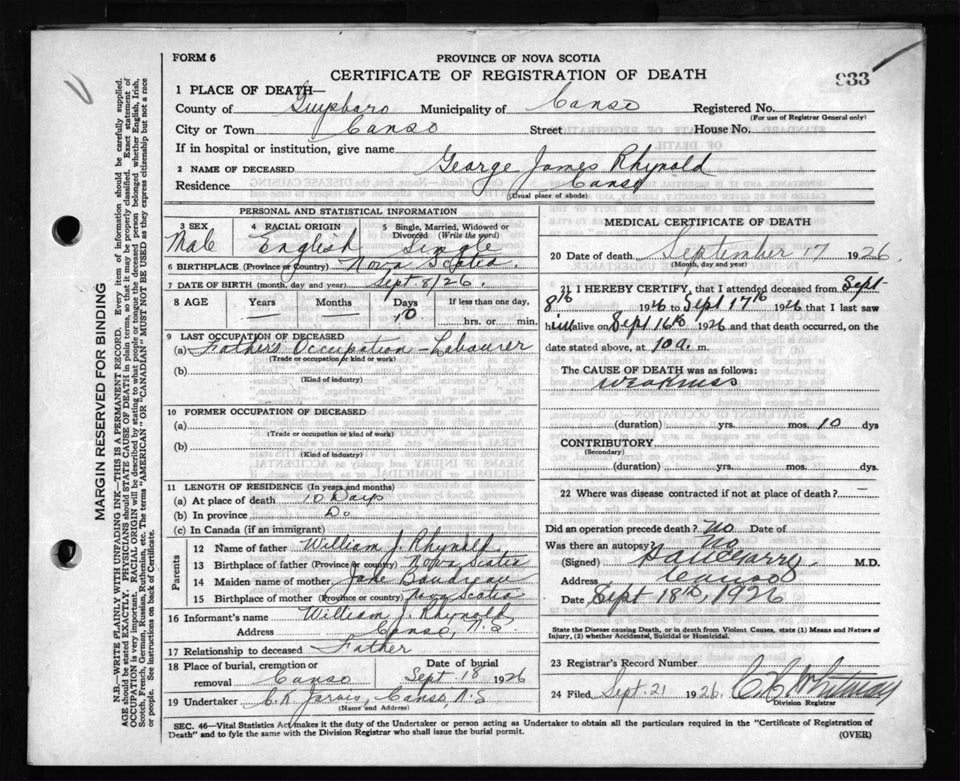 FORM 6
PROVINCE OF NOVA SCOTIA
CERTIFICATE OF REGISTRATION OF DEATH
933
1 PLACE OF DEATH—
County of Guysboro Municipality of Canso Registered No.
(For use of Registrar General only)
City or Town Canso Street House No.
If in hospital or institution, give name
2 NAME OF DECEASED George James Rhynold
Residence Canso
(Usual place of abode)
PERSONAL AND STATISTICAL INFORMATION
3 SEX 4 RACIAL ORIGIN 5 Single, Married, Widowed or Divorced (Write the word)
Male English Single
6 BIRTHPLACE (Province or Country) Nova Scotia.
7 DATE OF BIRTH (month, day and year) Sept. 8/26.
8 AGE Years Months Days If less than one day,
— — 10 hrs. or min.
9 LAST OCCUPATION OF DECEASED
(a) Father's Occupation - Labourer
(Trade or occupation or kind or work)
(b)
(Kind of industry)
10 FORMER OCCUPATION OF DECEASED
(a)
(Trade or occupation or kind of work)
(b)
(Kind of industry)
11 LENGTH OF RESIDENCE (In years and months)
(a) At place of death 10 Days
(b) In province Do
(c) In Canada (if an immigrant)
Parents
12 Name of father William J. Rhynold.
13 Birthplace of father (Province or country) Nova Scotia
14 Maiden name of mother Jane Boudreau
15 Birthplace of mother (Province or country) Nova Scotia
16 Informant's name William J. Rhynold
Address Canso, N.S.
17 Relationship to deceased Father
18 Place of burial, cremation or removal Canso Date of burial Sept. 18 1926
19 Undertaker C.K. Jarvis, Canso N.S
(Name and Address)
MEDICAL CERTIFICATE OF DEATH
20 Date of death September 17 1926.
(Month, day and year)
21 I HEREBY CERTIFY, that I attended deceased from Sept-
8th 1926 to Sept 17th 1926 that I last saw
him alive on Sept 16th 1926 and that death occurred, on the
date stated above, at 10 a. m.
The CAUSE OF DEATH was as follows:
weakness
(duration) yrs. mos. 10 dys
CONTRIBUTORY
(Secondary)
(duration) yrs. mos. dys.
22 Where was disease contracted if not at place of death? —
Did an operation precede death? No Date of
Was there an autopsy? No
(Signed) M.D.
Address Canso
Date Sept 18th, 1926
State the Disease causing Death, or in death from Violent Causes, state (1) Means and Nature of
Injury, (2) whether Accidental, Suicidal or Homicidal.
23 Registrar's Record Number
24 Filed Sept. 21 1926. Whitman
Division Registrar
SEC. 46—Vital Statistics Act makes it the duty of the Undertaker or person acting as Undertaker to obtain all the particulars required in the "Certificate of Registration of
Death" and to fyle the same with the Division Registrar who shall issue the burial permit.
(OVER)
MARGIN RESERVED FOR BINDING
N.B.—WRITE PLAINLY WITH UNFADING INK—THIS IS A PERMANENT RECORD. Every item of information should be carefully supplied.
AGE should be stated EXACTLY. PHYSICIANS should STATE CAUSE OF DEATH in plain terms, so that it may be properly classified. Exact statement of
OCCUPATION is very important. RACIAL ORIGIN will be described by stating to what people or tongue the deceased person belonged whether English, Irish,
Scotch, French, German, Russian, Ruthenian, etc. The terms "AMERICAN" or "CANADIAN" MUST NOT BE USED as they express citizenship but not a race
or people. See instructions on back of Certificate.